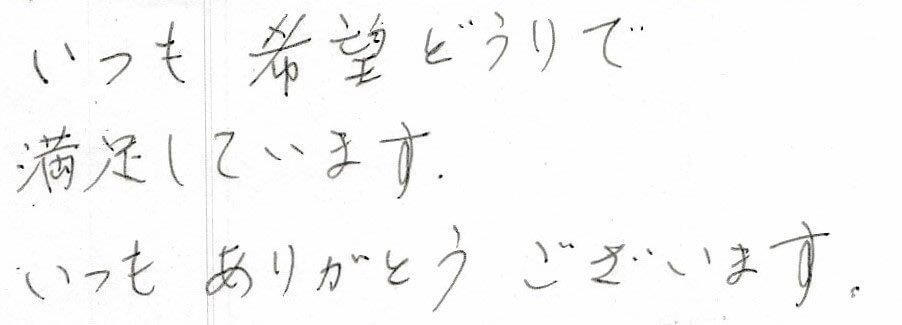 いつも 希望どうりで
満足しています.
いつも ありがとう ございます.